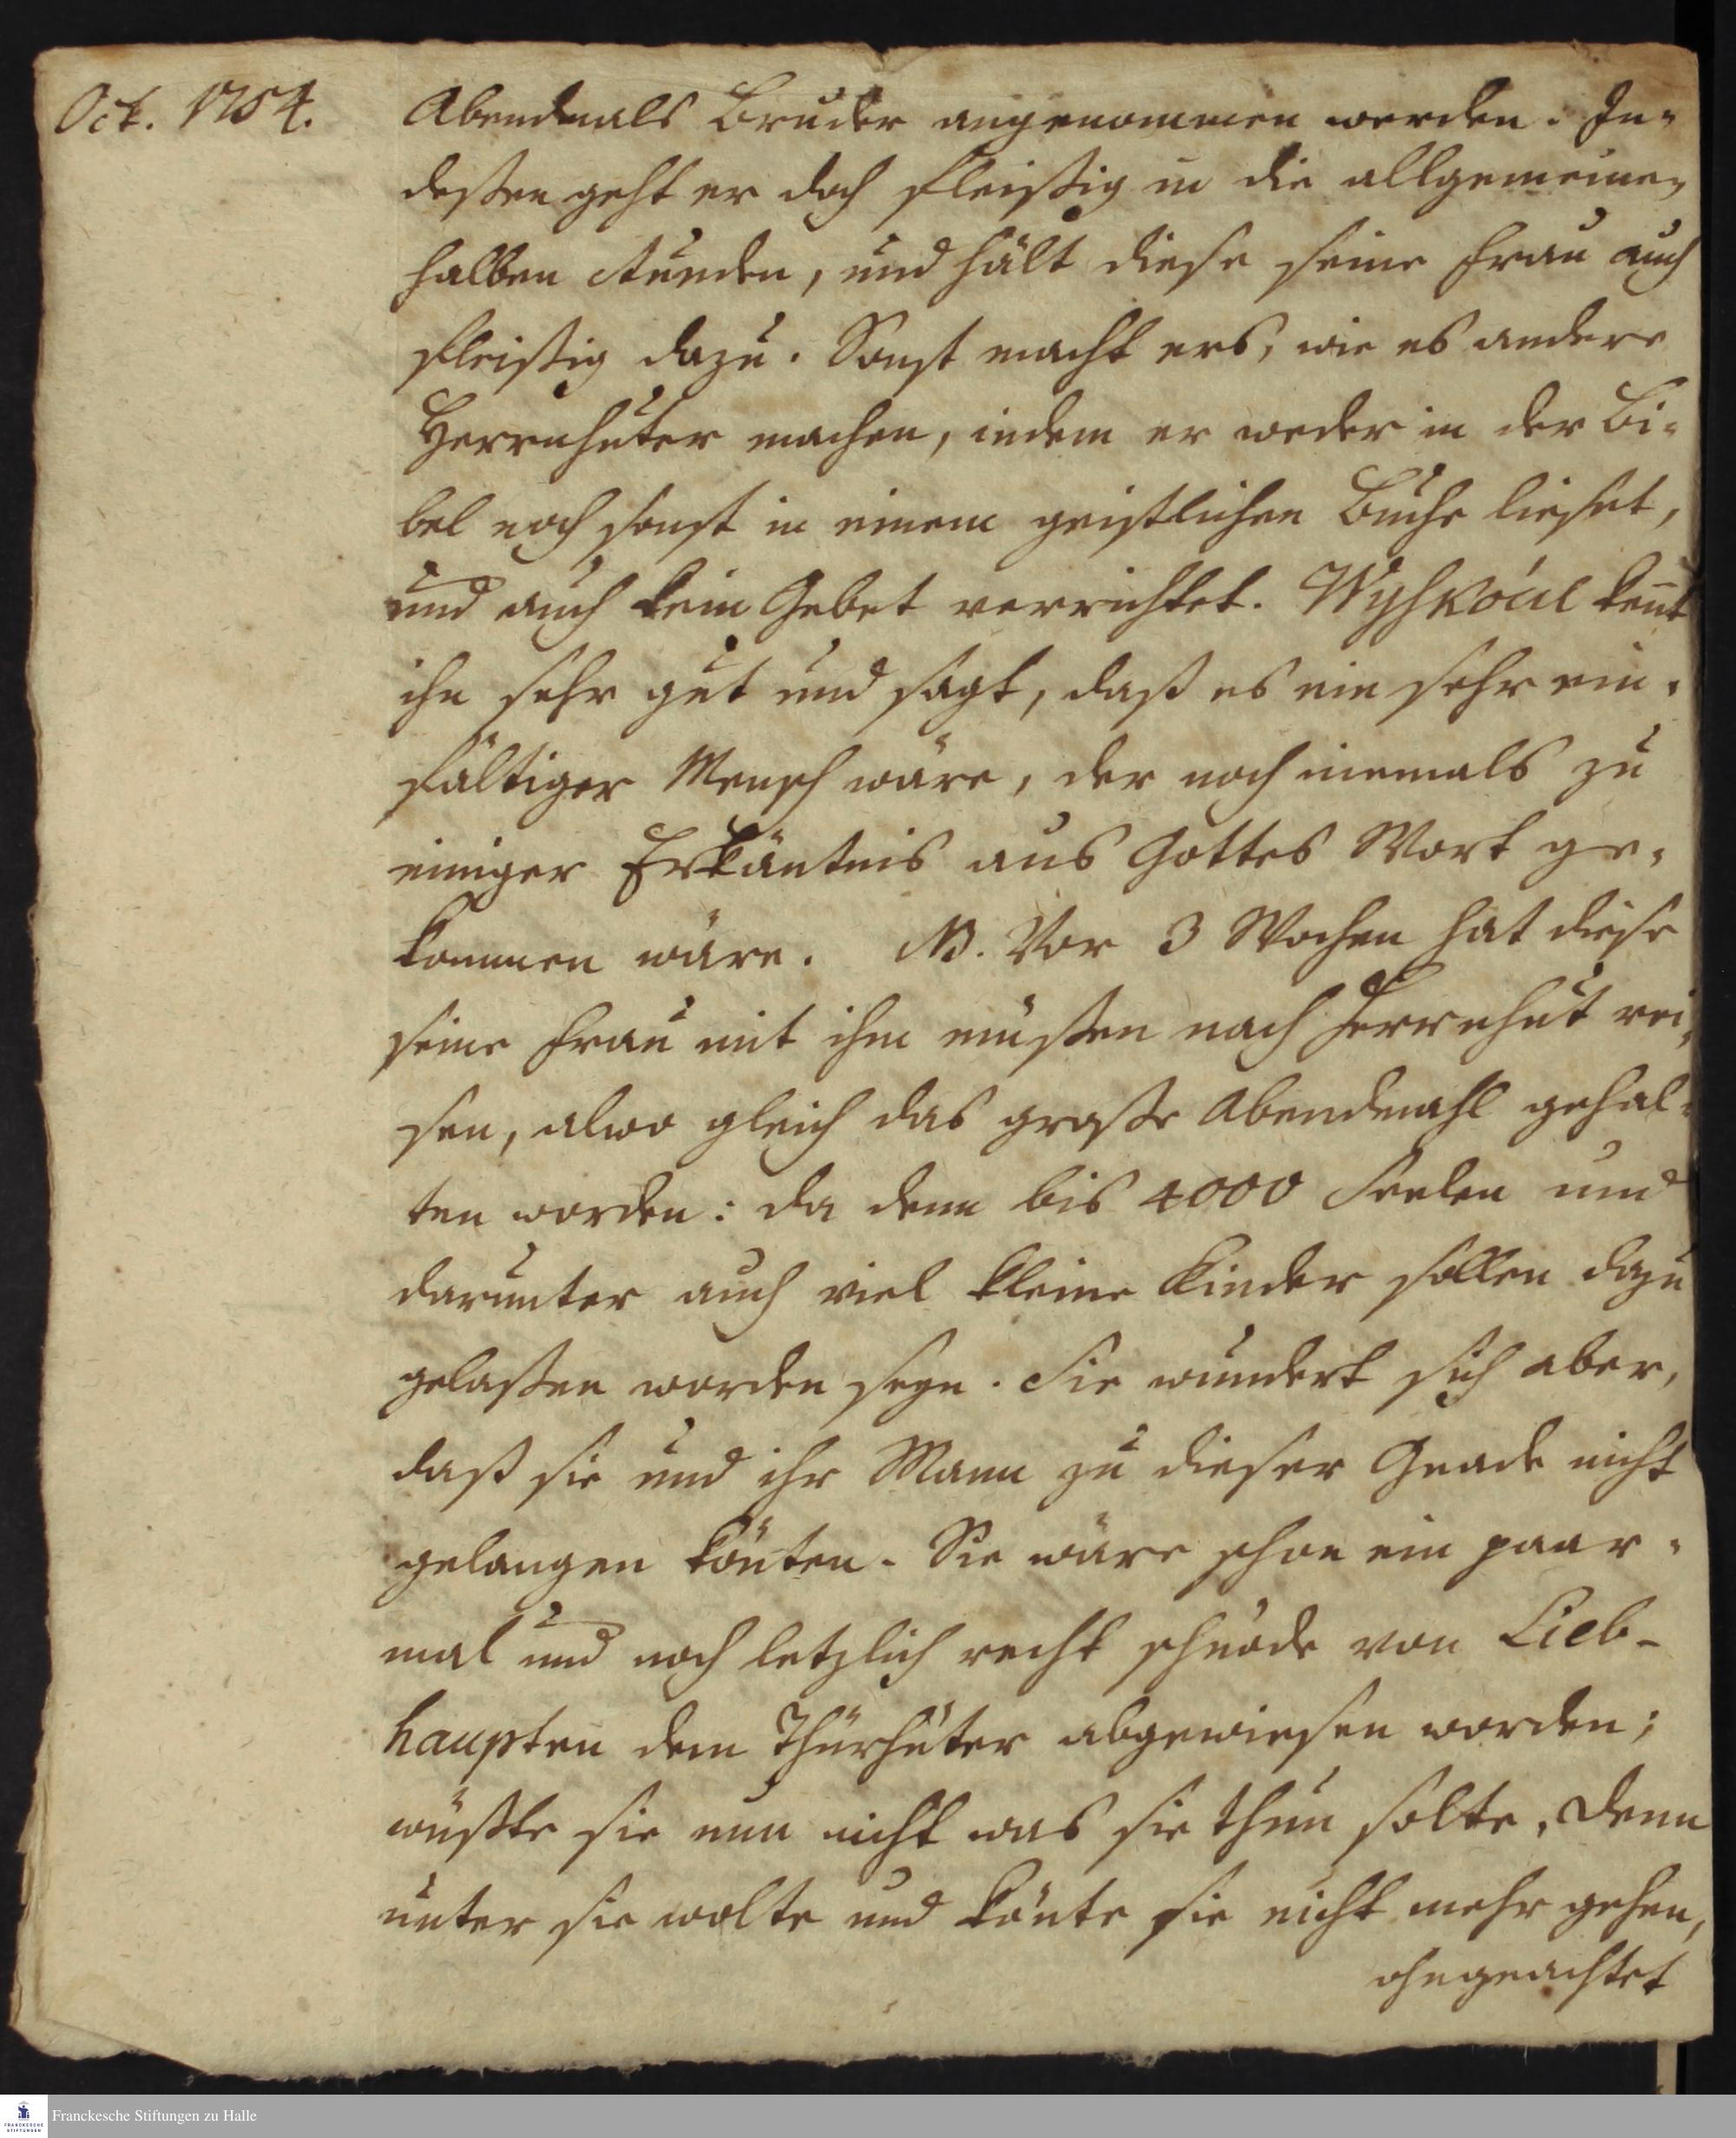 Oct. 1754.
Abendmals Bruder angenommen werden. In-
deßen geht er doch fleißig in die allgemeine-
halben Stunden, und hält diese seine Frau auch
fleißig dazu. Sonst macht ers, wie es andere
Herrnhuter machen, indem er weder in der Bi-
bel noch sonst in einem geistlichen Buche lieset,
und auch kein Gebet verrichtet. Wyskočil keñt
ihn sehr gut und sagt, daß es ein sehr ein-
fältiger Mensch wäre, der noch niemals zu
einiger Erkäntnis aus Gottes Wort ge-
kommen wäre. NB. Vor 3 Wochen hat diese
seine Frau mit ihm müßen nach Herrnhut rei-
sen, alwo gleich das große Abendmahl gehal-
ten worden: da denn bis 4000 Seelen und
darunter auch viel kleine Kinder sollen dazu
gelaßen worden seyn. Sie wundert sich aber,
daß sie und ihr Mann zu dieser Gnade nicht
gelangen könten. Sie wäre schon ein paar-
mal und noch letzlich recht schnöde von Lieb-
haupten dem Thürhüter abgewiesen worden;
wüßte sie nun nicht was sie thun solte, denn
unter sie wolte und könte sie nicht mehr gehen,
ohngeachtet
Franckesche Stiftungen zu Halle
FRANCKESCHE
STIFTUNGEN